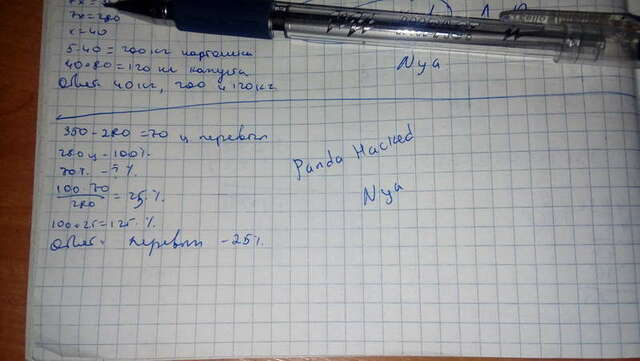 7x = 280
x = 40
5·40 = 200 кг картошки
40+80=120 кг капусты
Ответ 40 кг, 200 и 120 кг.
Nya
350 - 280 = 70 ц перевып
280 ц - 100%
70 ц - ? %
100·70 = 25%
280
100+25=125%
Ответ: перевып - 25%
Panda Hacked
Nya